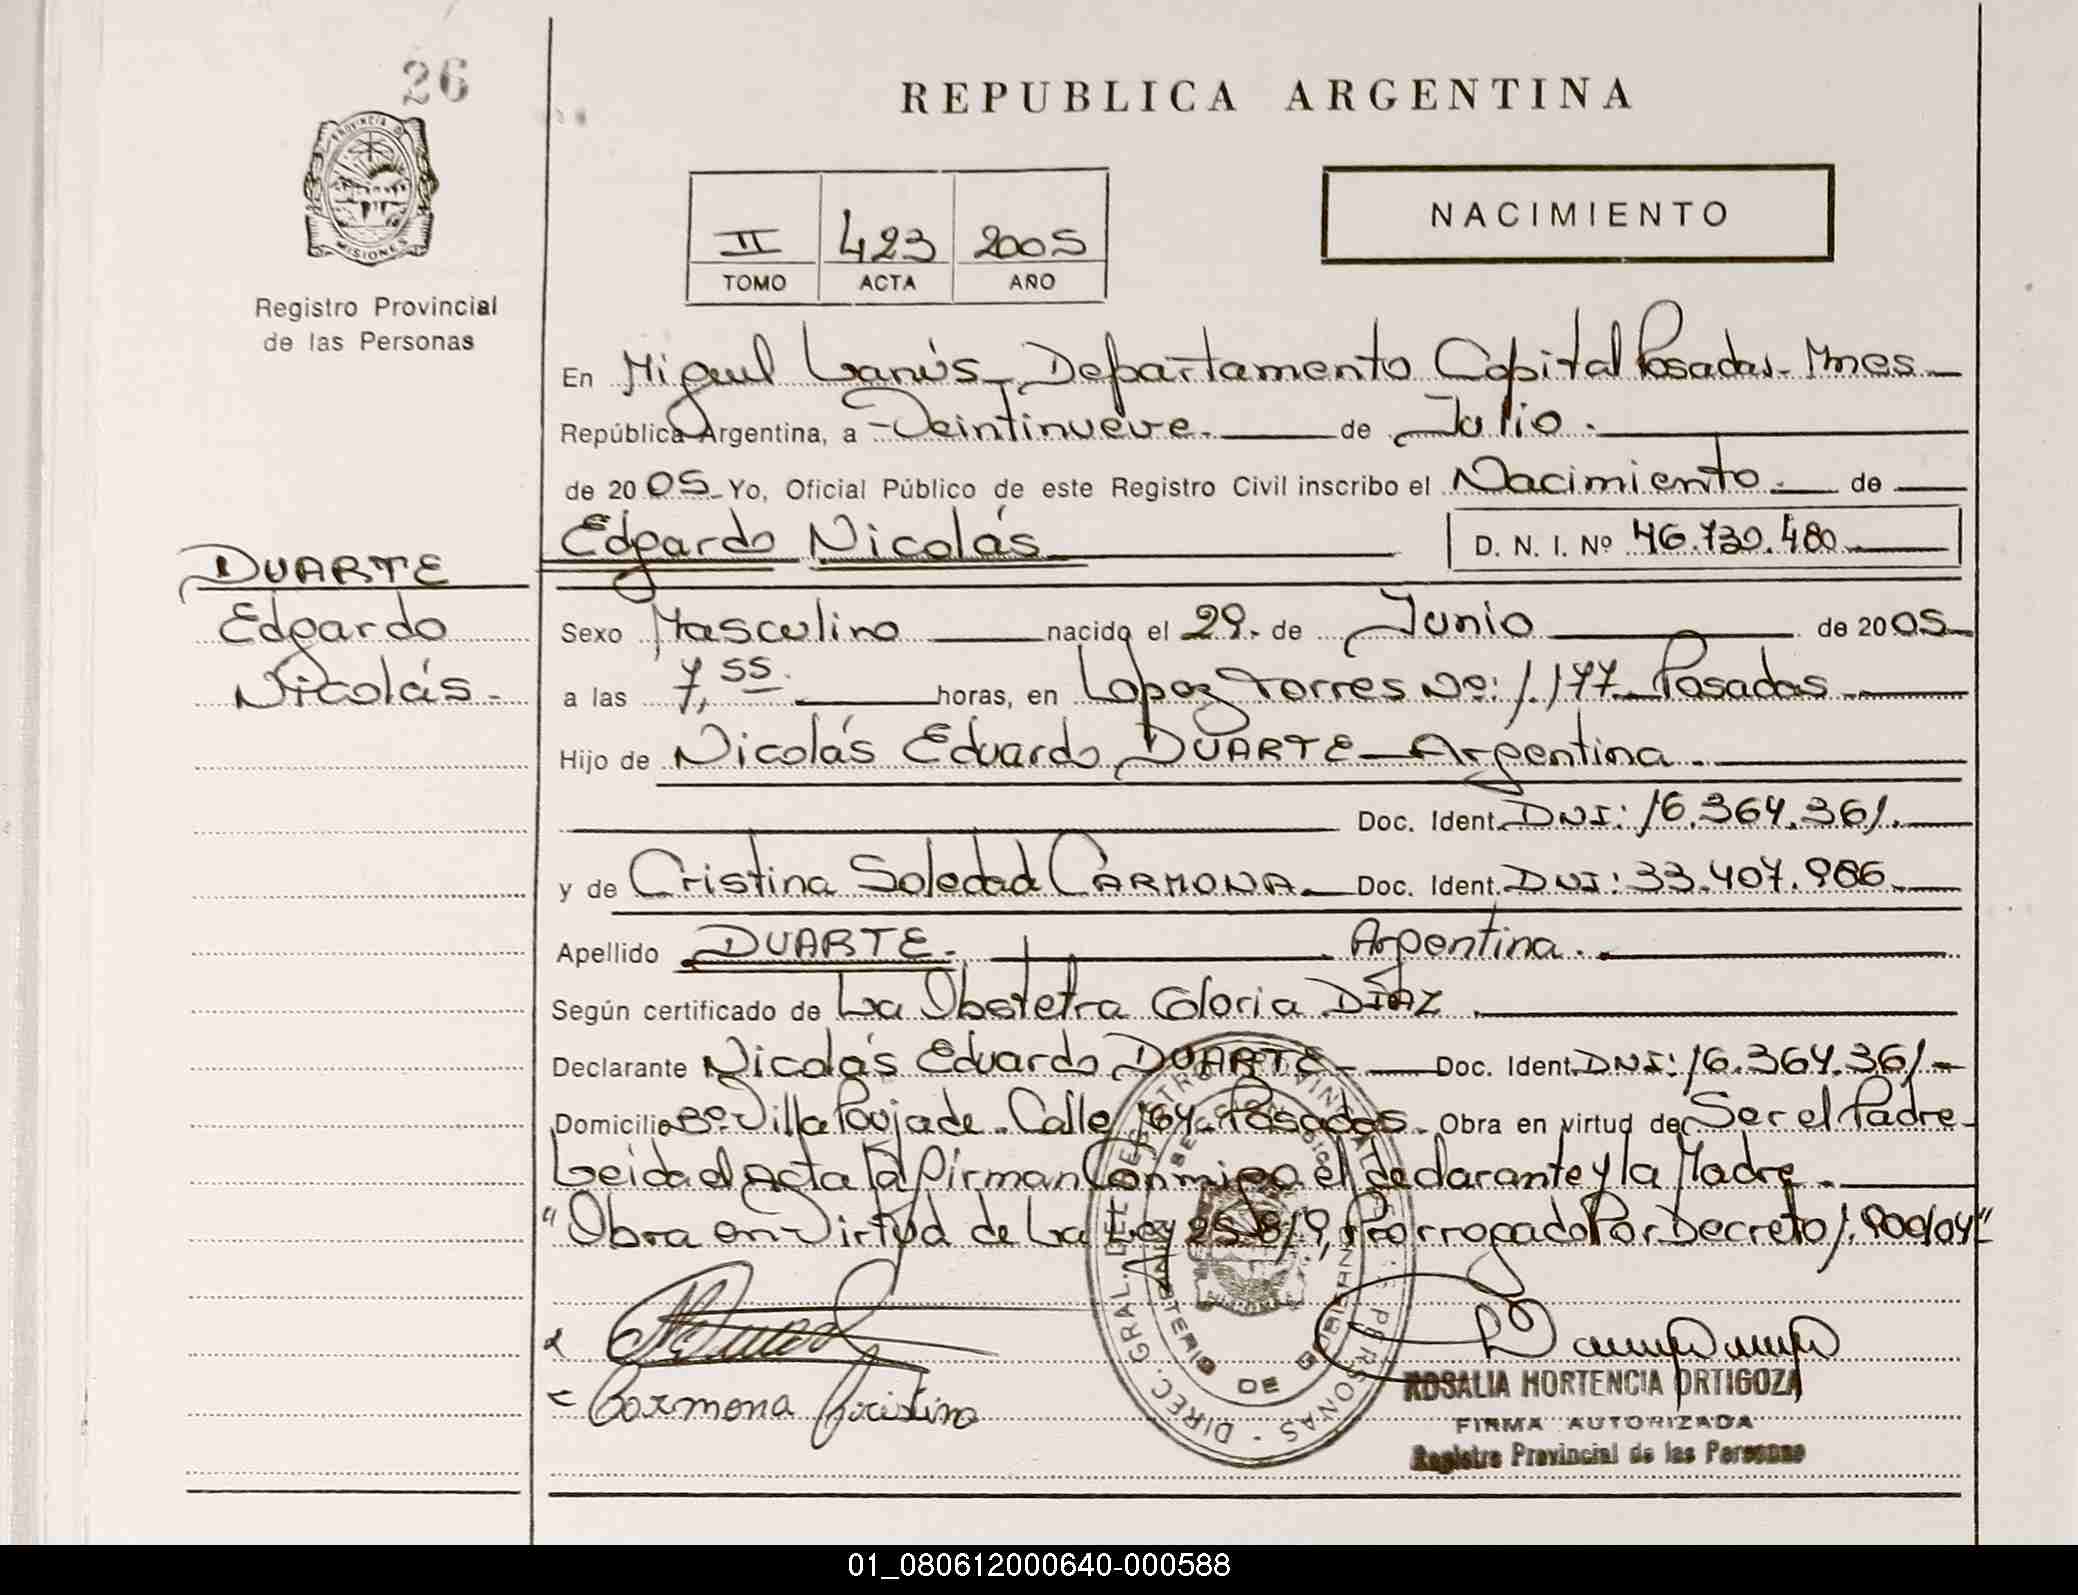 26
REPUBLICA ARGENTINA
PROVINCIA D
MISIONES
Registro Provincial
de las Personas
II 423 2005
TOMO ACTA AÑO
NACIMIENTO
En Miguel Lanús, Departamento Capital Posadas- Mnes
República Argentina, a Veintinueve. de Julio.
de 2005 Yo, Oficial Público de este Registro Civil inscribo el Nacimiento. de
Edgardo Nicolás D. N. I. Nº 46.730.480
DUARTE
Edgardo
Nicolás.-
Sexo Masculino nacido el 29. de Junio de 2005
a las 7,55. horas, en Lopez Torres Nº: 1.177 Posadas
Hijo de Nicolás Eduardo DUARTE - Argentina.
Doc. Ident. DNI: 16.364.361.
y de Cristina Soledad CARMONA Doc. Ident. DNI: 33.407.986
Apellido DUARTE. Argentina.
Según certificado de La Obstetra Gloria DÍAZ
Declarante Nicolás Eduardo DUARTE - Doc. Ident. DNI: 16.364.361-
Domicilio Bº Villa Poujade - Calle 164 - Posadas - Obra en virtud de Ser el Padre-
Leida el Acta la firman Conmigo el declarante y la Madre.
"Obra en Virtud de La Ley 25.819, Prorrogado Por Decreto 1.900/04"
DIREC. GRAL. DEL REGISTRO PROVINCIAL DE LAS PERSONAS
MINISTERIO DE GOBIERNO
Carmona Cristina
ROSALIA HORTENCIA ORTIGOZA
FIRMA AUTORIZADA
Registro Provincial de las Personas
01_080612000640-000588